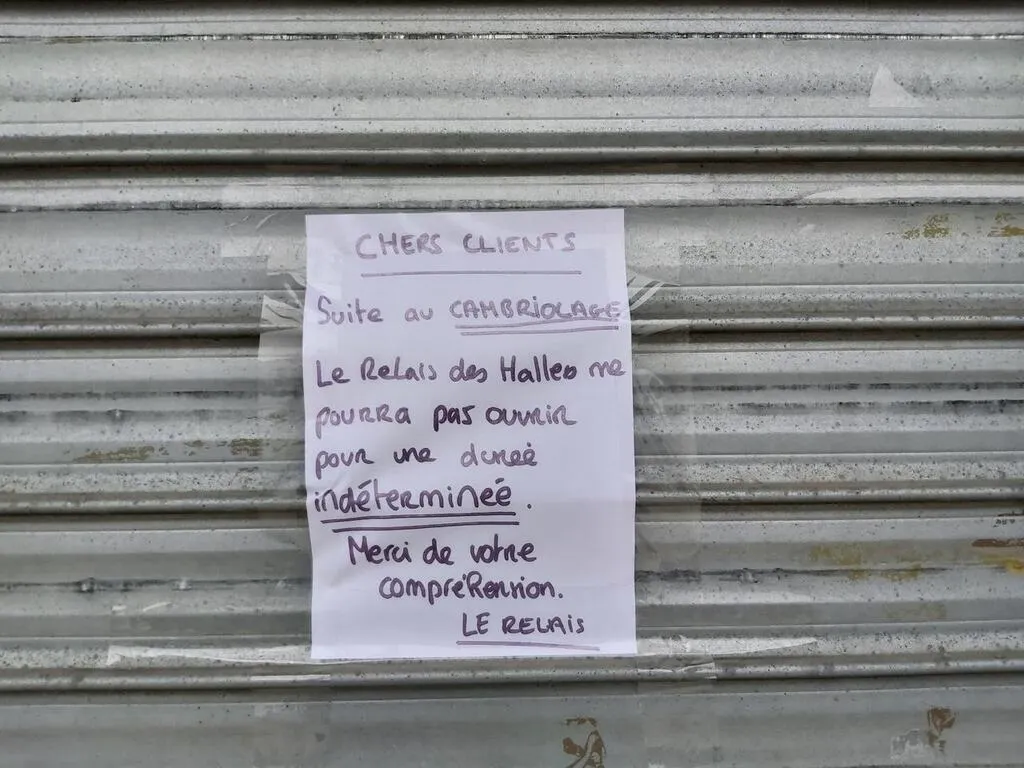 CHERS CLIENTS
Suite au CAMBRIOLAGE
Le Relais des Halles ne
pourra pas ouvrir
pour une dureé
indéterminéé.
Merci de votre
compréhension.
LE RELAIS